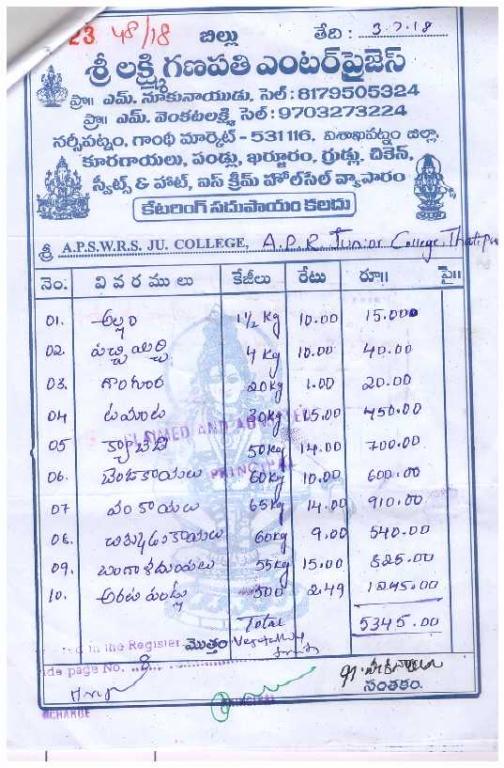 23 48/18 బిల్లు తేది: 3.7.18
శ్రీ లక్ష్మి గణపతి ఎంటర్‌ప్రైజెస్
ప్రొ॥ ఎమ్. నూకునాయుడు. సెల్ : 8179505324
ప్రొ॥ ఎమ్. వెంకటలక్ష్మి, సెల్ : 9703273224
నర్సీపట్నం, గాంధీ మార్కెట్ - 531116, విశాఖపట్నం జిల్లా,
కూరగాయలు, పండ్లు, ఖర్జూరం, గ్రుడ్లు, చికెన్,
స్వీట్స్ & హాట్, ఐస్ క్రీమ్ హోల్‌సేల్ వ్యాపారం
కేటరింగ్ సదుపాయం కలదు
శ్రీ A.P.S.W.R.S. JU. COLLEGE, A.P.R Junior College,
నెం. వివరములు కేజీలు రేటు రూ॥ పై॥
01. అల్లం 1½ kg 10.00 15.000
02. పచ్చిమిర్చి 4 kg 10.00 40.00
03. గొంగూర 20kg 1.00 20.00
04 టమాట 30kg 15.00 450.00
05 క్యాబేజి 50kg 14.00 700.00
06. బెండకాయలు 60kg 10.00 600.00
07 వంకాయలు 65kg 14.00 910.00
08. చిక్కుడుకాయలు 60kg 9.00 540.00
09. బంగాళదుంపలు 55kg 15.00 825.00
10. అరటి పండ్లు 500 2.49 1245.00
CLAIMED AND
PRINCIPAL
Total 5345.00
in the Register మొత్తం Vegetables
page No. 8
సంతకం.
PRINCIPAL